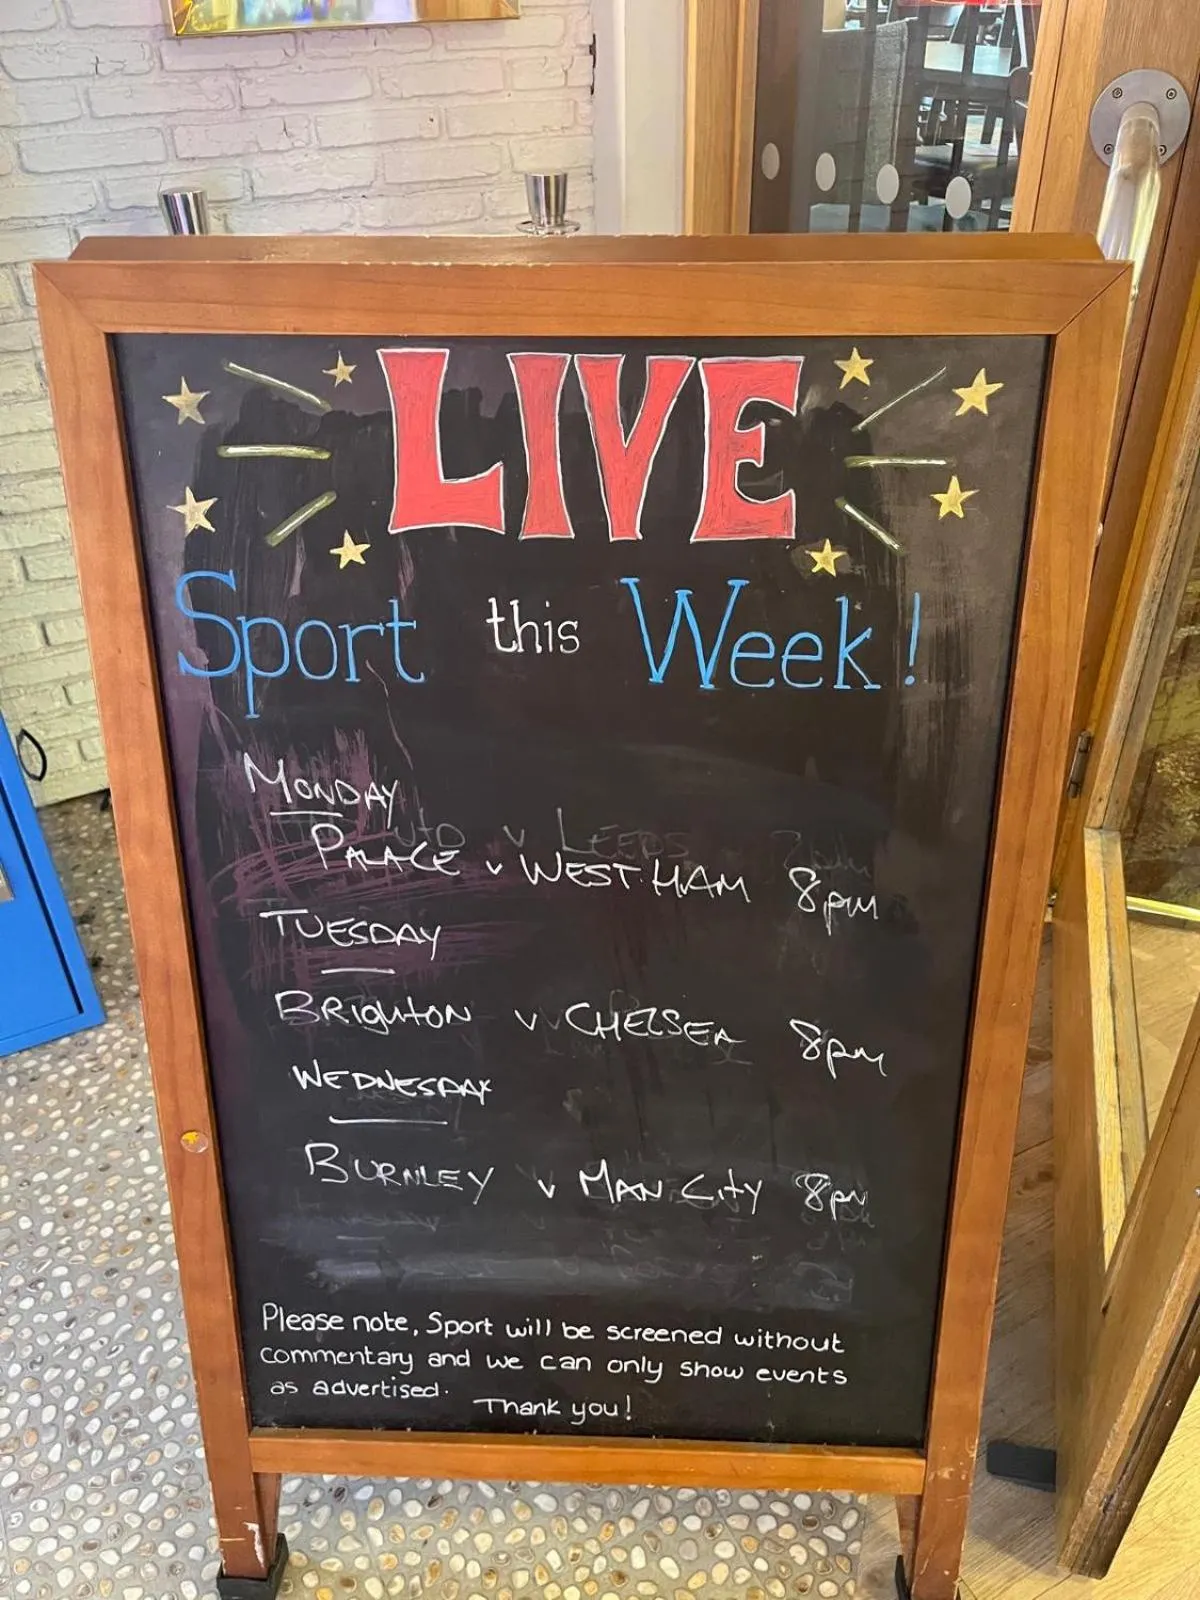 LIVE
Sport this Week!
MONDAY
UTD v LEEDS
PALACE v WEST HAM 8pm
TUESDAY
BRIGHTON v CHELSEA 8pm
WEDNESDAY
BURNLEY v MAN CITY 8pm
Please note, Sport will be screened without
commentary and we can only show events
as advertised.
Thank you!